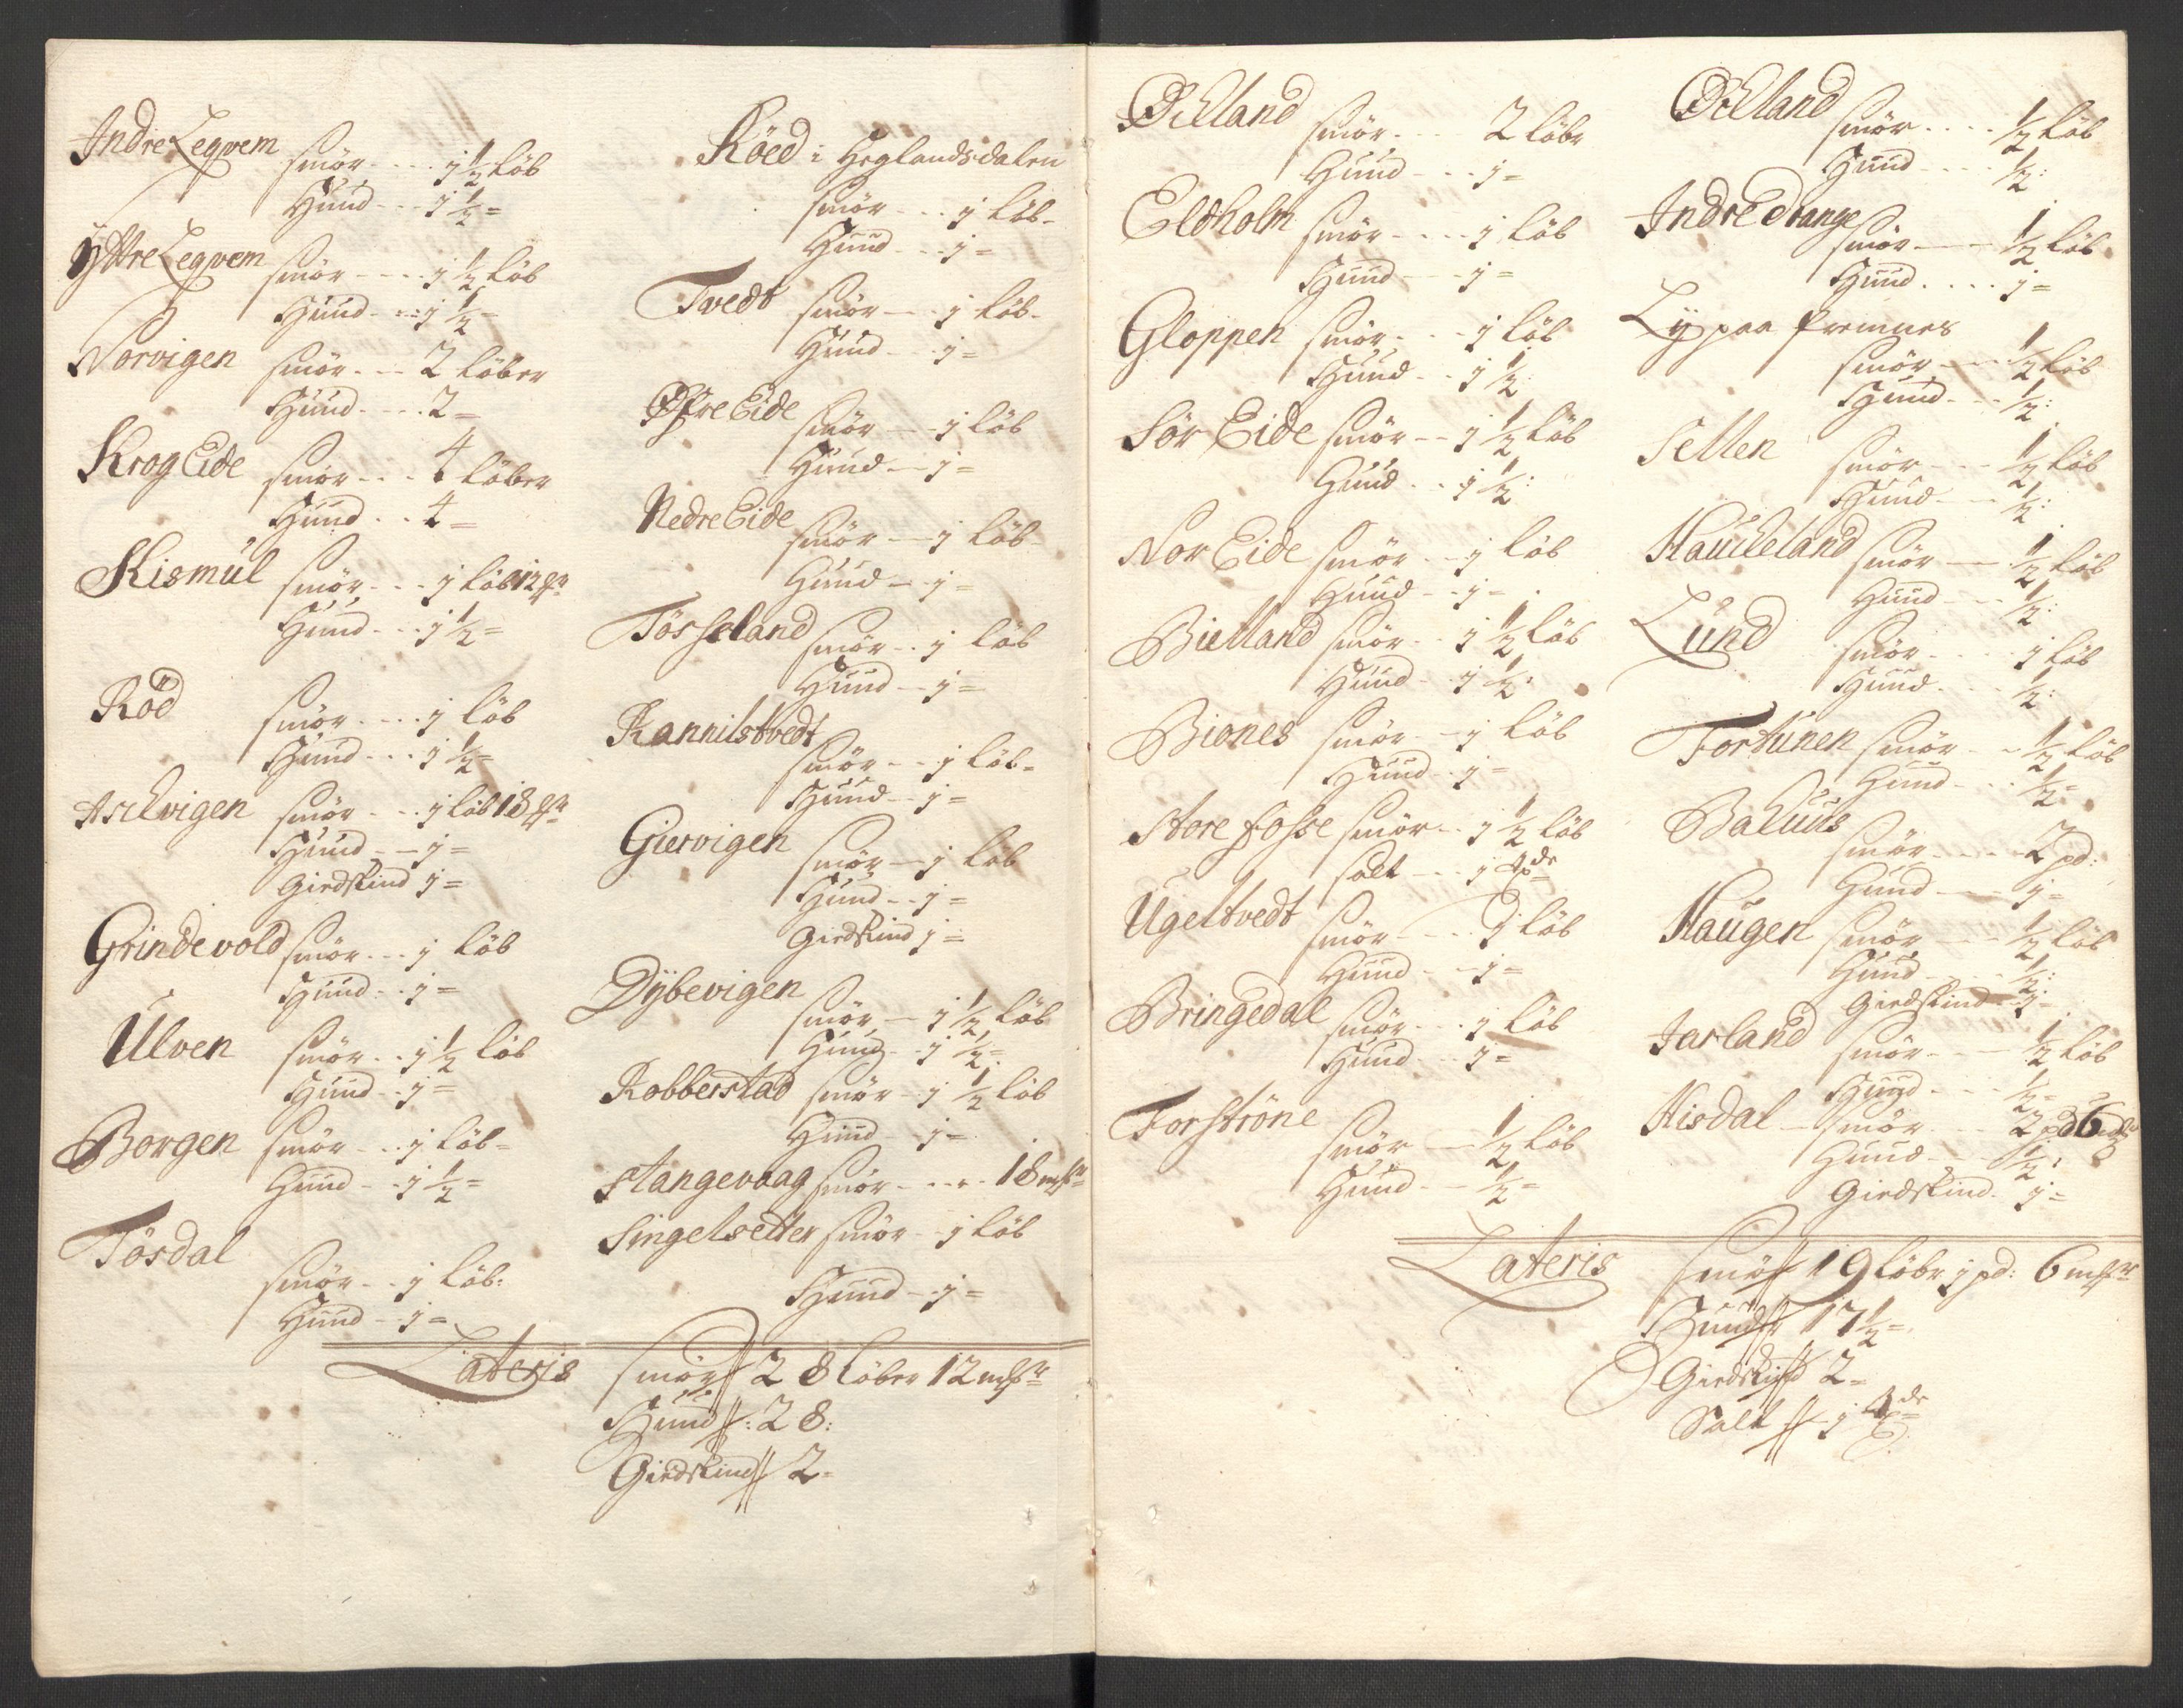 Indre Leqvem smör - - - j 1/2 löb
Huud - - j 1/2 =
Yttre Leqvem smör - - - j 1/2 löb
Huud - - j 1/2 =
Norvigen smör - - - 2 löber
Huud - - - 2 =
Krog Eide smör - - - 4 löber
Huud - - 4 =
Kismul smör - - - j löb 12
Huud - - j 1/2 =
Röd smör - - - j löb
Huud - - - j 1/2 =
Askvigen smör - - - j löb 18
Huud - - j =
Giedskind j =
Grindevold smör - - - j löb
Huud - - j =
Ulven smör - - j 1/2 löb
Huud - - j =
Borgen smör - - - j löb =
Huud - - j 1/2 =
Tösdal
smör - - j löb:
Huud - j =
Röed i Heglandsdalen
smör - - - j löb -
Huud - - j =
Tvedt smör - - - j löb -
Huud - - j =
Øfre Eide
smör - - j löb
Huud - - j =
Nedre Eide
smör - - j löb
Huud - - j =
Tösseland smör - - j löb
Huud - - j =
Rannilstvedt
smör - - j löb -
Huud - - j =
Giervigen
smör - - j löb
Huud - - j =
Giedskind j =
Dybevigen
smör - - j 1/2 löb
Huud - - j 1/2 =
Robberstad smör - j 1/2 löb
Huud - - j =
Stangevaag smör - - - - 18 mkr
Singelsetter smör - j löb
Huud - j =
Lateris smör // 28 löber 12 mkr
Huud // : 28 :
Giedskind // 2 -
Øckland smör - - - 2 löbr
Huud - - - j =
Eldholm smör - - - - j löb
Huud - - - j =
Gloppen smör - - - j löb
Huud - - j 1/2 :
Sör Eide smör - - j 1/2 löb
Huud - - j 1/2 :
Nor Eide smör - - j löb
Huud - - j =
Bielland smör - - j 1/2 löb
Huud - - j 1/2 :
Biones smör - - j löb
Huud - - j =
Store fosse smör - - j 1/2 löb
salt - - - j
Ugeltvedt
smör - - - j löb
Huud - - j =
Bringedal smör - - - j löb
Huud - - - j =
Forströne
smör - - 1/2 löb
Huud - - 1/2 =
Øckland smör - - - - 1/2 löb
Huud - - - - 1/2 :
Indre Drange
smör - - - 1/2 löb
Huud - - - - j =
Ly paa Fremnes
smör - - - 1/2 löb
Huud - - - 1/2 :
Sellen smör - - - 1/2 löb
Huud - - - 1/2 :
Hauckeland smör - - - 1/2 löb
Huud - - - 1/2 :
Lund smör - - - j löb
Huud - - - 1/2 :
Fortunen smör - - 1/2 löb
Huud - - - 1/2 =
smör - - - - 2 pd:
Huud - - - j =
Haugen smör - - - 1/2 löb
Huud - - - 1/2 :
Giedskind - - j -
Jarland smör - - - 1/2 löb
Huud - - - 1/2 =
Hisdal - smör - - - 2 pd 6
Huud - - - 1/2 :
Giedskind - j =
Lateris smör // 19 löbr j pd: 6 mkr
Huud // 17 1/2 =
Giedskind // 2 -
Salt // - j